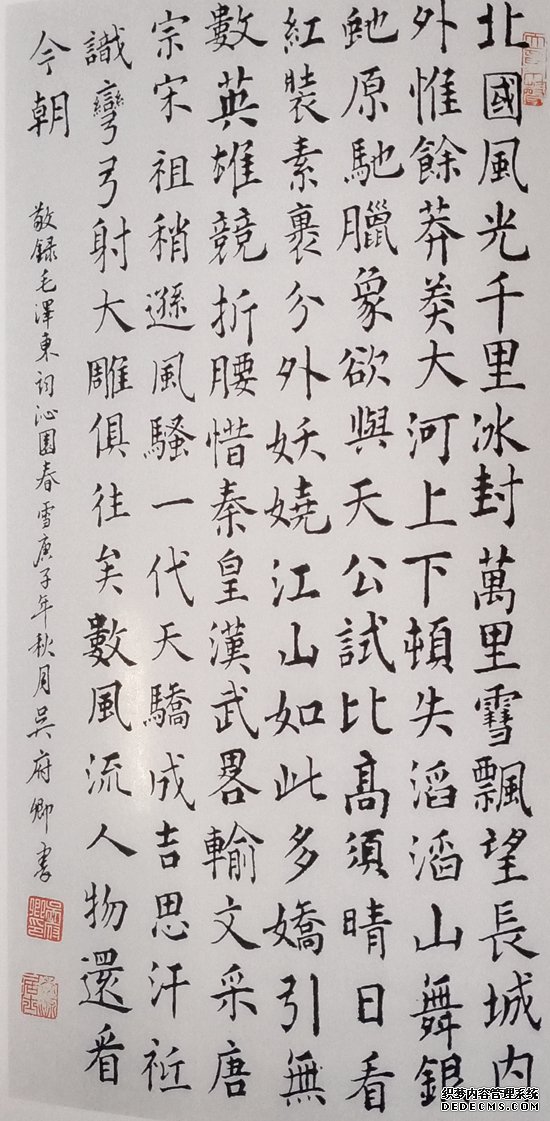 北國風光千里冰封萬里雪飄望長城内
外惟餘莽莽大河上下頓失滔滔山舞銀
虵原馳臘象欲與天公試比髙須晴日看
紅裝素裹分外妖嬈江山如此多嬌引無
數英雄競折腰惜秦皇漢武畧輸文采唐
宗宋祖稍遜風騷一代天驕成吉思汗祗
識彎弓射大雕俱往矣數風流人物還看
今朝
敬録毛澤東詞沁園春雪庚子年秋月吳府卿書
织梦内容管理系统
DEDECMS.COM